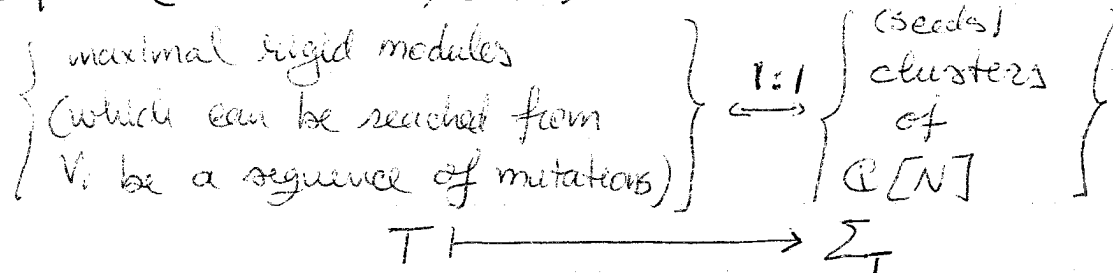 { maximal rigid modules (which can be reached from V_i be a sequence of mutations) } 1:1 ⟷ { (seeds) clusters of ℂ[N] }
T ⟼ Σ_T